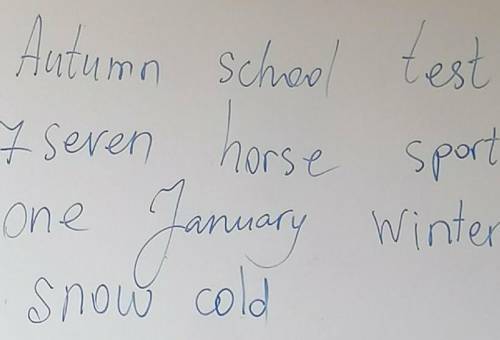 Autumn school test
7 seven horse sport
one January winter
snow cold